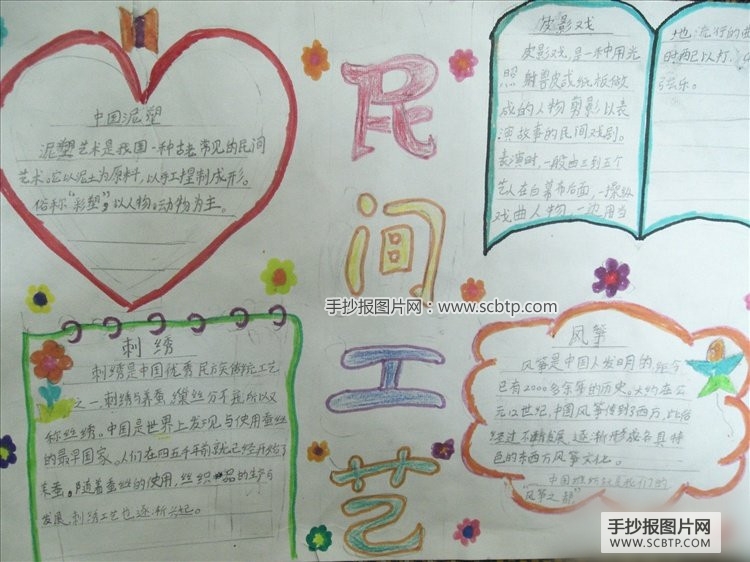 中国泥塑
泥塑艺术是我国一种古老常见的民间
艺术。它以泥土为原料,以手工捏制成形。
俗称“彩塑”,以人物、动物为主。
民间工艺
皮影戏
皮影戏,是一种用光
照射兽皮或纸板做
成的人物剪影以表
演故事的民间戏剧。
表演时,一般由三到五个
艺人在白幕布后面,一边操纵
戏曲人物,一边用当
地流行的曲
时配以打
弦乐。
刺绣
刺绣是中国优秀民族传统工艺
之一。刺绣与养蚕,缫丝分不开,所以又
称丝绣。中国是世界上发现与使用蚕丝
的最早国家。人们在四五千年前就已经开始了
养蚕。随着蚕丝的使用,丝织品的生产与
发展,刺绣工艺也逐渐兴起。
风筝
风筝是中国人发明的,距今
已有2000多年的历史。大约在公
元12世纪,中国风筝传到了西方,此后
经过不断发展,逐渐形成各具特
色的东西方风筝文化。
中国潍坊就是我们的
风筝之都
手抄报图片网:www.scbtp.com
手抄报图片网
WWW.SCBTP.COM